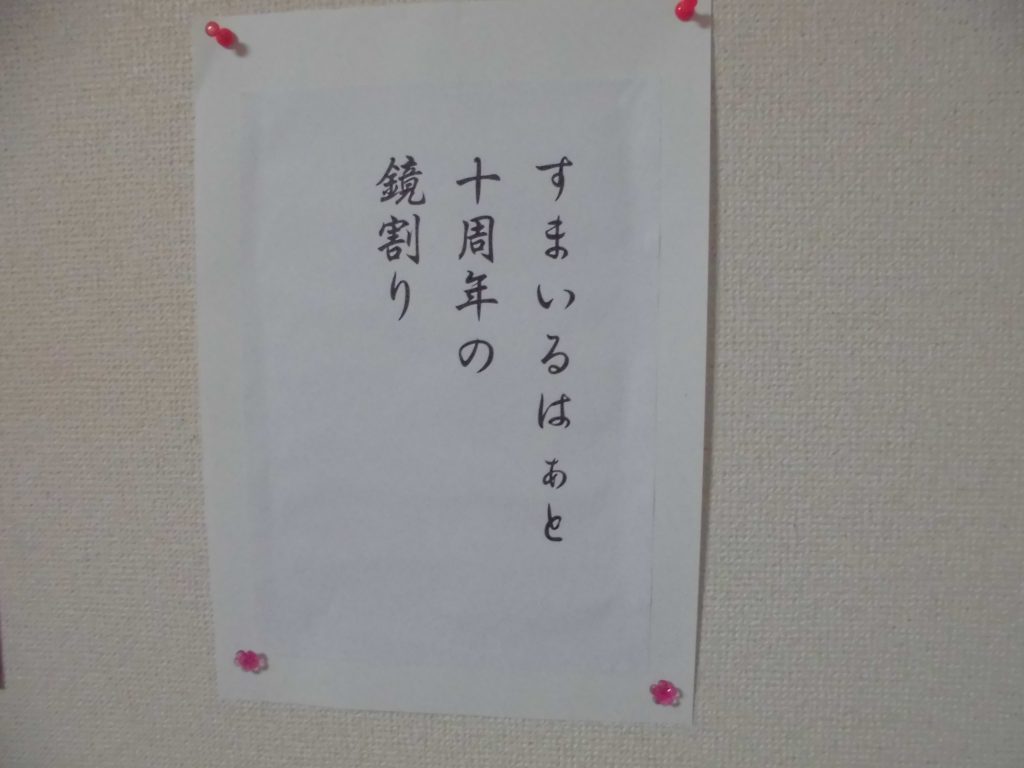 すまいるはぁと
十周年の
鏡割り